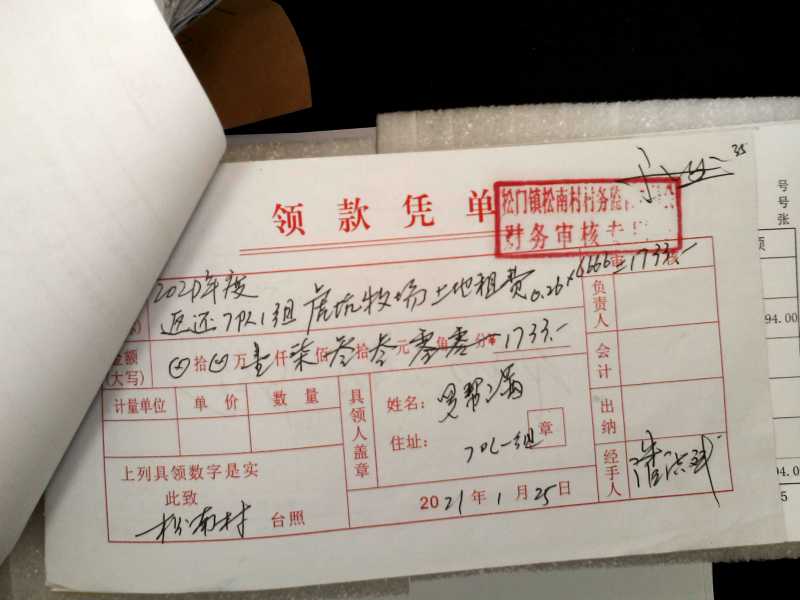 35
领款凭单
松门镇松南村村务监
财务审核专
2020年度
返还7队1组虎坑牧场土地租费0.26×6666=1733.-
审核
金额
(大写)
拾 万壹仟柒佰叁拾叁元零角零分 1733.-
负责人
会计
出纳
经手人
计量单位 单价 数量
具领人盖章
姓名:
住址: 7队一组 章
上列具领数字是实
此致
松南村 台照
2021年1月25日
号
号
张
94.00